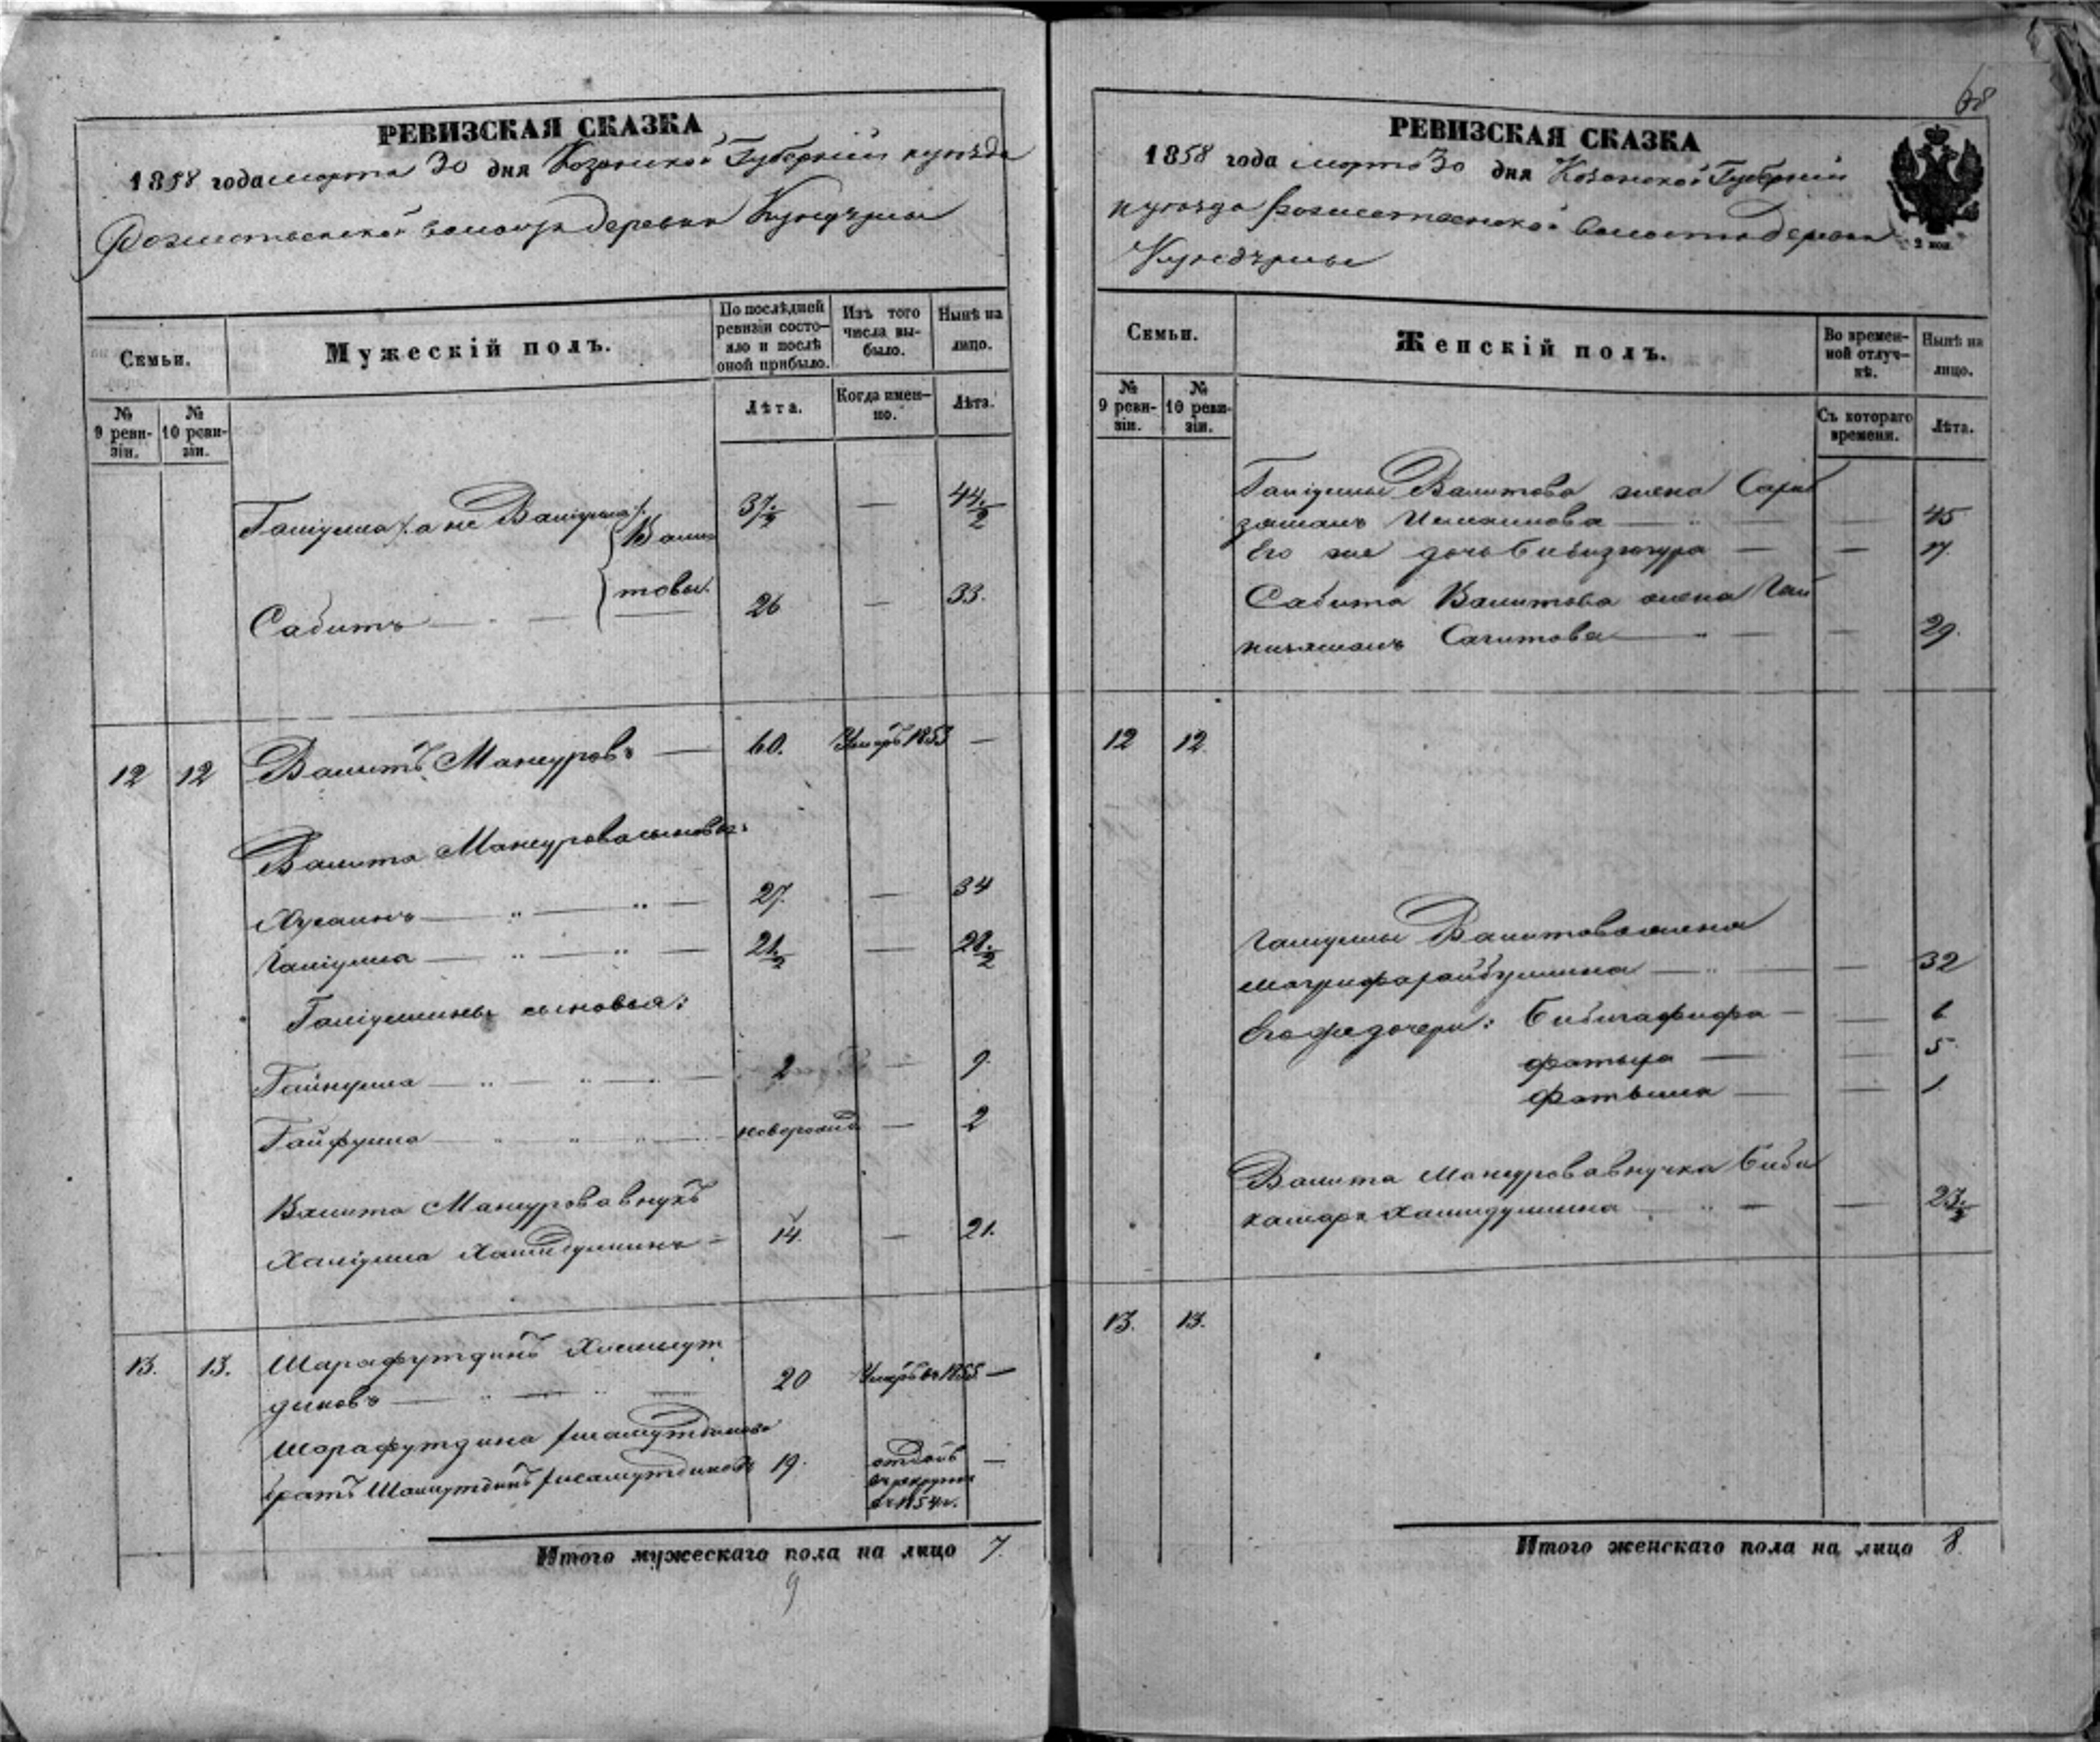 РЕВИЗСКАЯ СКАЗКА
1858 года марта 30 дня Казанской Губерніи и уѣзда
Рожественской волости деревни Кундучлы
Семьи.
Мужескій полъ.
По послѣдней ревизіи состояло и послѣ оной прибыло.
Изъ того числа выбыло.
Нынѣ на лицо.
№ 9 ревизіи.
№ 10 ревизіи.
Лѣта.
Когда именно.
Лѣта.
Галіулла /: а не Валіулла :/ 37½ — 44½
Вали-
товы.
Сабитъ — 26 — 33.
12 12 Валитъ Мансуровъ — 60. Умеръ 1853 —
Валита Мансурова сыновья:
Хусаинъ — 27. — 34
Галіулла — 21½ — 28½
Галіуллины сыновья:
Гайнулла — 2 — 9.
Гайфулла — новорожд — 2
Валита Мансурова внукъ
Халіулла Хамидуллинъ — 14. — 21.
13. 13. Шарафутдинъ Хисамут
диновъ — 20 Умеръ въ 1855. —
Шарафутдина Хисамутдинова
братъ Хисамутдиновъ 19. отданъ —
въ рекруты
въ 1854 г.
Итого мужескаго пола на лицо 7.
9
68
РЕВИЗСКАЯ СКАЗКА
1858 года марта 30 дня Казанской Губерніи
и уѣзда Рожественской волости деревни
Кундучлы
2 коп.
Семьи.
Женскій полъ.
Во временной отлучкѣ.
Нынѣ на лицо.
№ 9 ревизіи.
№ 10 ревизіи.
Съ котораго времени.
Лѣта.
Галіуллы Валитова жена Сарби
замалъ — — 45
Его же дочь Бибизюгура — — 17.
Сабита Валитова жена Гай
Сагитова — — 29.
12 12.
Галіуллы Валитова жена
— — 32
Его же дочери: Бибигафифа — — 6
Фатыма — — 5.
— — 1
Валита Мансурова внучка Биби
камаря Хамидуллина — — 23½
13. 13.
Итого женскаго пола на лицо 8.